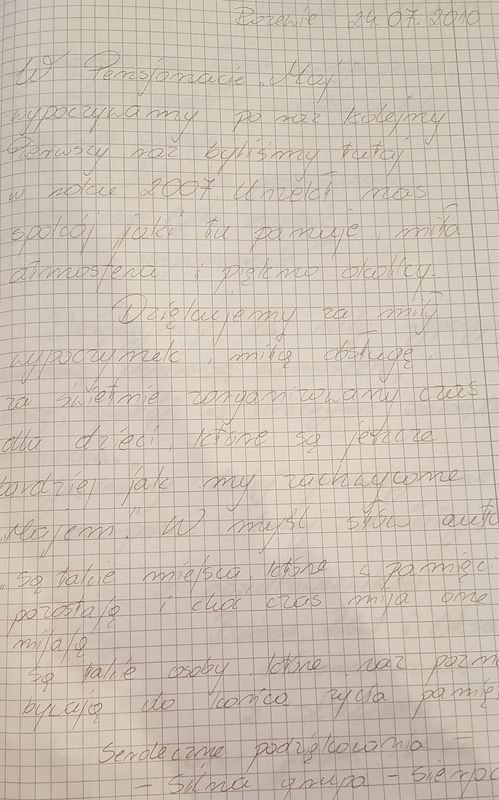 Rozewie 24.07.2010
W Pensjonacie „Maj"
wypoczywamy po raz kolejny
Pierwszy raz byliśmy tutaj
w rokie 2007. Urzekł nas
spokój jaki tu panuje, miła
atmosfera i piękno okolicy.
Dziękujemy za miły
wypoczynek, miłą obsługę,
za świetnie zorganizowany czas
dla dzieci, które są jeszcze
bardziej jak my zachwycone
„Majem." W myśl słów auto
„są takie miejsca, które w pamięc
pozostają i choć czas mija one
mijają
są takie osoby, które raz pozn
bywają do końca życia pamię
Serdeczne podziękowania -
- Silna grupa - Sierpc